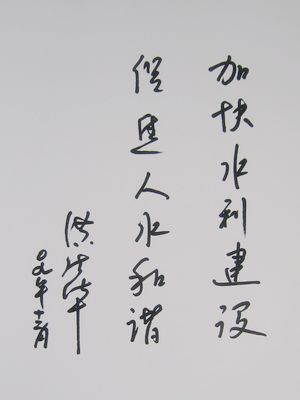 加快水利建设
促进人水和谐
〇九年十二月